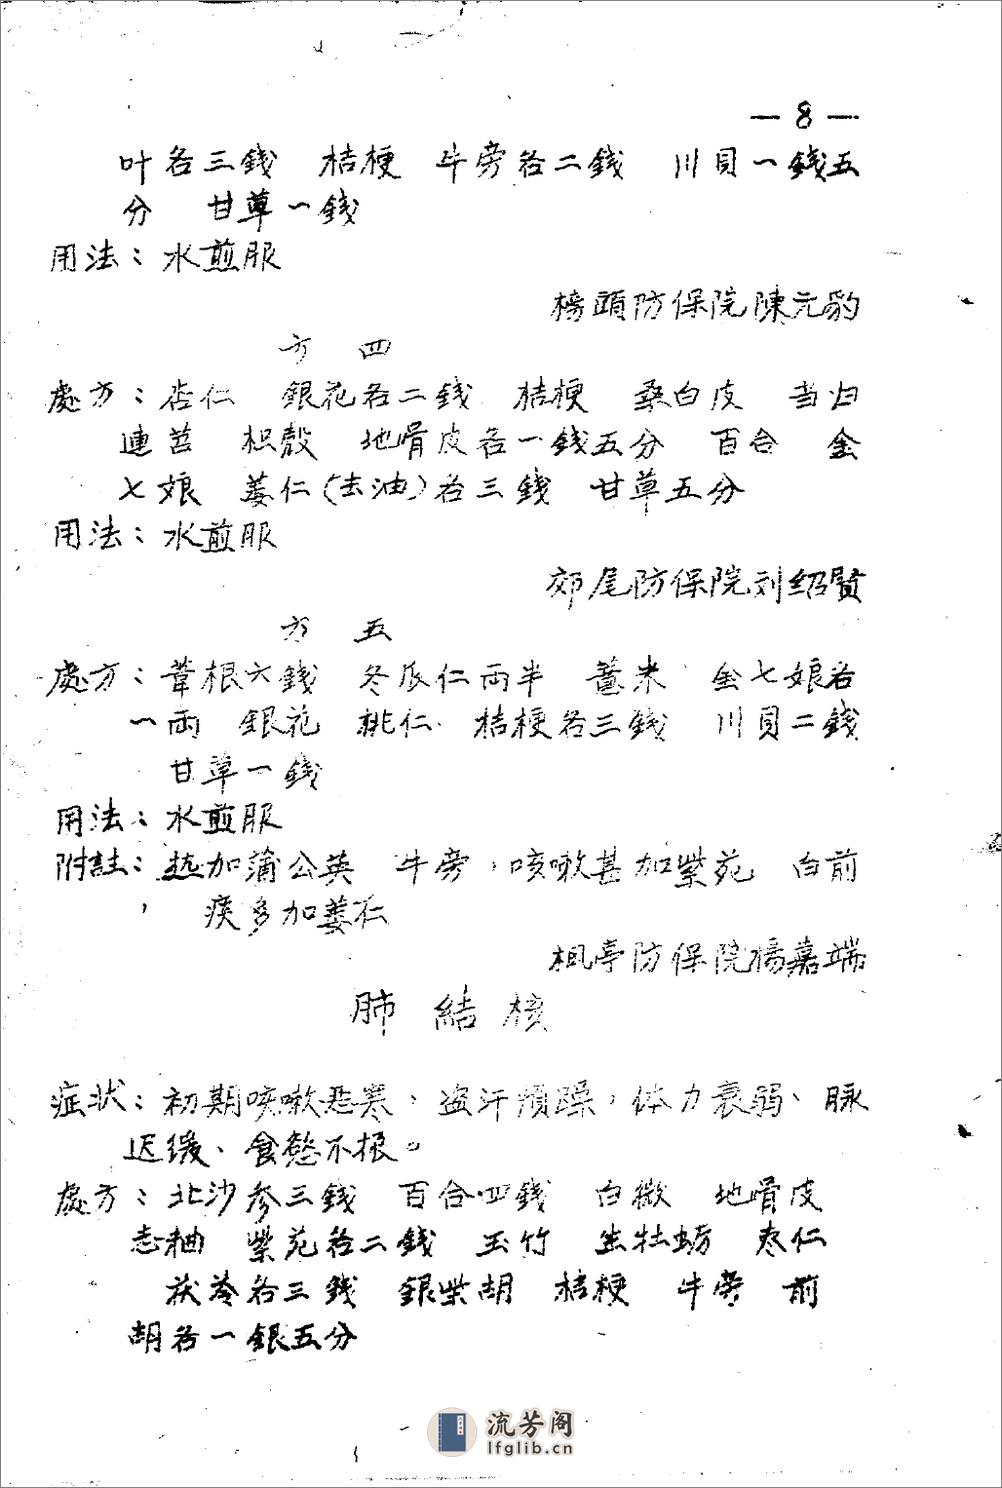 — 8 —
叶各三錢 桔梗 牛旁各二錢 川貝一錢五
分 甘草一錢
用法：水煎服
榜頭防保院陳元豹
方 四
處方：杏仁 銀花各二錢 桔梗 桑白皮 当归
連苕 枳殼 地骨皮各一錢五分 百合 金
七娘 姜仁(去油)各三錢 甘草五分
用法：水煎服
郊尾防保院刘绍賢
方 五
處方：葦根六錢 冬瓜仁両半 薏米 金七娘各
一両 銀花 桃仁 桔梗各三錢 川貝二錢
甘草一錢
用法：水煎服
附註：热加蒲公英 牛旁，咳嗽甚加紫苑 白前
，痰多加姜仁
枫亭防保院楊嘉端
肺結核
症状：初期咳嗽恶寒、盗汗煩躁，体力衰弱、脉
迟缓、食慾不振。
處方：北沙参三錢 百合四錢 白微 地骨皮
志柚 紫苑各二錢 玉竹 生牡蛎 枣仁
茯苓各三錢 銀柴胡 桔梗 牛旁 前
胡各一銀五分
流芳阁
lfglib.cn